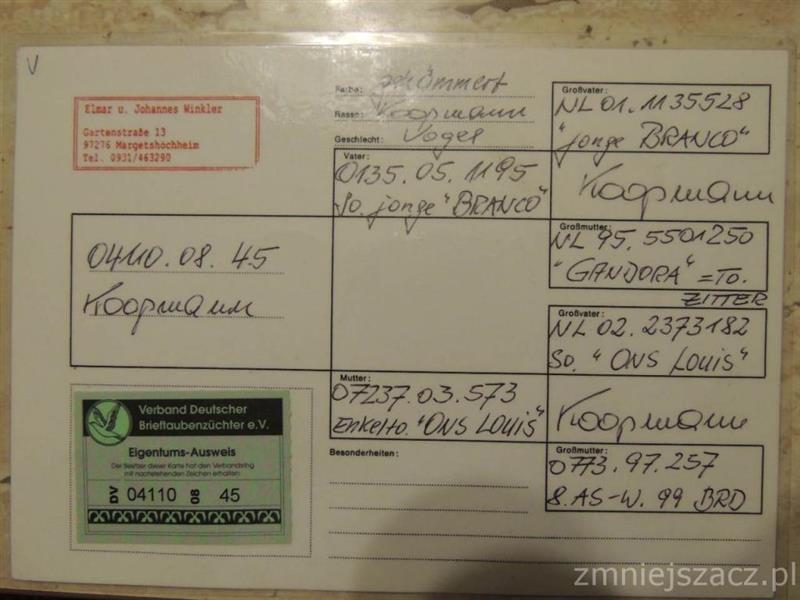 V
Elmar u. Johannes Winkler
Gartenstraße 13
97276 Margetshöchheim
Tel. 0931/463290
Farbe: gehämmert
Rasse: Koopmann
Geschlecht: Vogel
Vater:
0135.05.1195
So. jonge "BRANCO"
Großvater:
NL 01.1135528
"jonge BRANCO"
Koopmann
Großmutter:
NL 95.5501250
"GANDORA" = To.
ZITTER
04110.08.45
Koopmann
Großvater:
NL 02.2373182
So. "ONS LOUIS"
Mutter:
07237.03.573
Enkelto. "ONS LOUIS"
Koopmann
Großmutter:
0773.97.257
8. AS-W. 99 BRD
Besonderheiten:
Verband Deutscher
Brieftaubenzüchter e.V.
Eigentums-Ausweis
Der Besitzer dieser Karte hat den Verbandsring
mit nachstehenden Zeichen erhalten:
DV 04110 08 45
zmniejszacz.pl